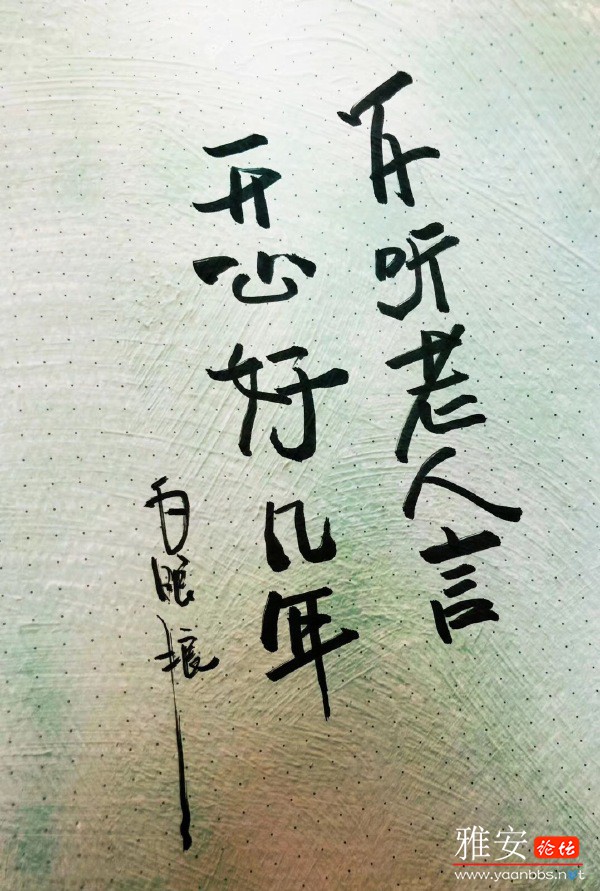 不听老人言
开心好几年
白眼狼
雅安论坛
www.yaanbbs.net